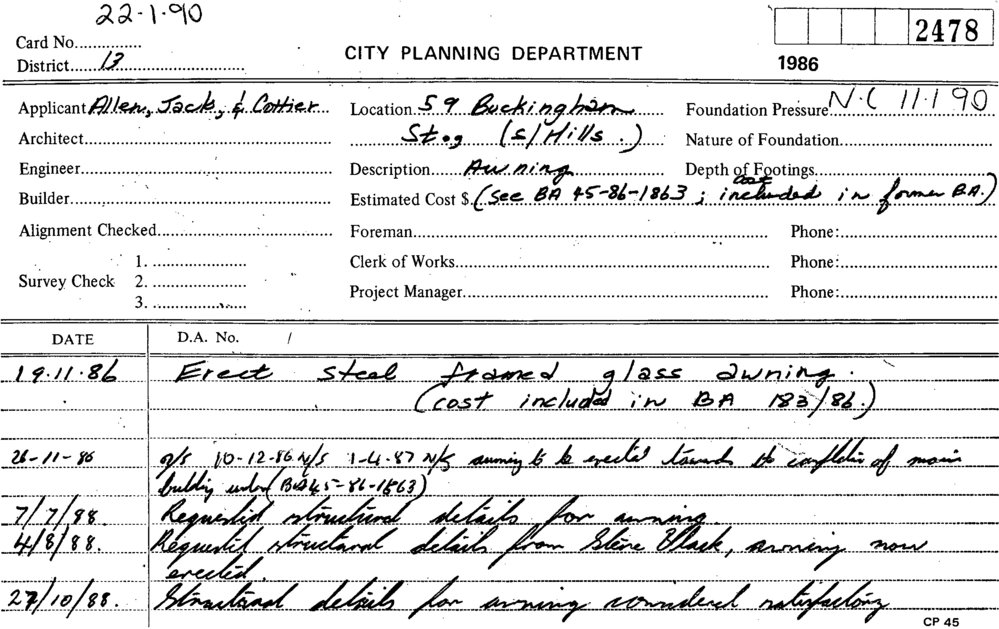 22·1·90
Card No.
2478
District 13
CITY PLANNING DEPARTMENT
1986
Applicant Allen, Jack, & Cottier
Location 59 Buckingham
Foundation Pressure N.C 11.1 90
Architect
St. (S/Hills.)
Nature of Foundation
Engineer
Description Awning
Depth of Footings
Builder
Estimated Cost $ (See BA 45-86-1863; cost included in former BA.)
Alignment Checked
Foreman
Phone:
Survey Check
1.
Clerk of Works
Phone:
2.
3.
Project Manager
Phone:
DATE
D.A. No. /
19.11.86 Erect steel framed glass awning.
(cost included in BA 183/86.)
26-11-86 N/S 10-12-86 N/S 1-4-87 N/S awning to be erected towards the completion of main
building under (BA 45-86-1863)
7/7/88. Requested structural details for awning
4/8/88. Requested structural details from Steve Black, awning now
erected.
27/10/88. Structural details for awning considered satisfactory
CP 45